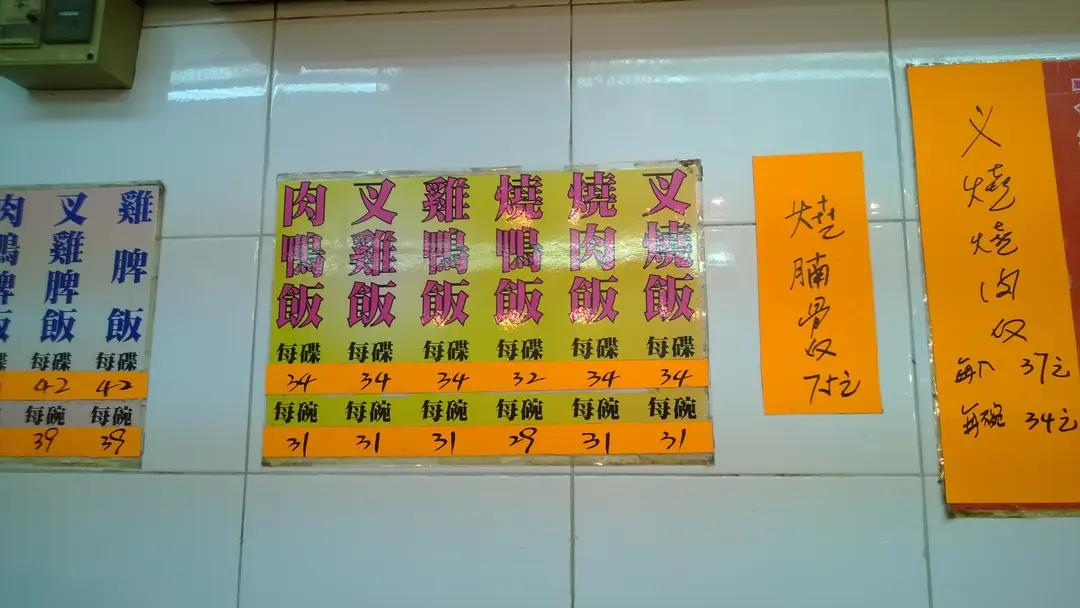 雞脾飯
每碟
42
每碗
39
叉雞脾飯
每碟
42
每碗
39
肉鴨脾飯
叉燒飯
每碟
34
每碗
31
燒肉飯
每碟
34
每碗
31
燒鴨飯
每碟
32
每碗
29
雞鴨飯
每碟
34
每碗
31
叉雞飯
每碟
34
每碗
31
肉鴨飯
每碟
34
每碗
31
燒腩骨反
75元
叉燒燒肉反
37元
每碗 34元